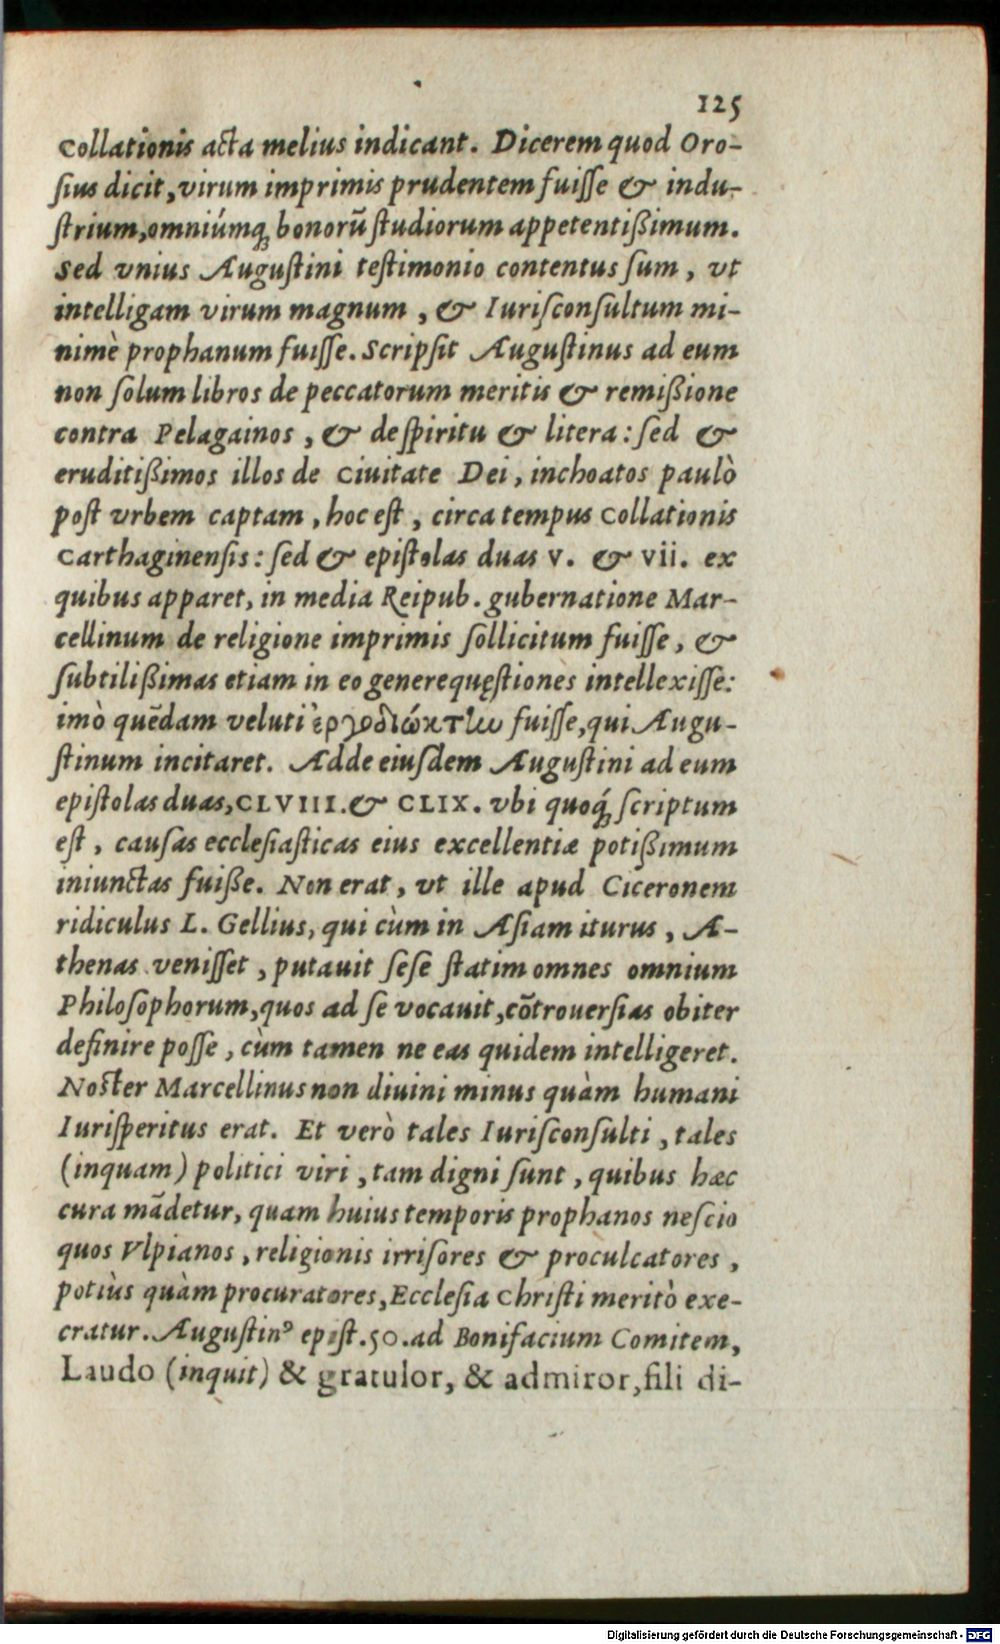 125
Collationis acta melius indicant. Dicerem quod Oro-
ſius dicit, virum imprimis prudentem fuiſſe & indu-
ſtrium, omniúmq́ bonorū ſtudiorum appetentißimum.
Sed vnius Auguſtini teſtimonio contentus ſum, vt
intelligam virum magnum, & Iuriſconſultum mi-
nimè prophanum fuiſſe. Scripſit Auguſtinus ad eum
non ſolum libros de peccatorum meritis & remißione
contra Pelagainos, & de ſpiritu & litera: ſed &
eruditißimos illos de Ciuitate Dei, inchoatos paulò
poſt vrbem captam, hoc eſt, circa tempus Collationis
Carthaginenſis: ſed & epiſtolas duas V. & VII. ex
quibus apparet, in media Reipub. gubernatione Mar-
cellinum de religione imprimis ſollicitum fuiſſe, &
ſubtilißimas etiam in eo genere quęſtiones intellexiſſe:
imò quēdam veluti ἐργοδιώκτην fuiſſe, qui Augu-
ſtinum incitaret. Adde eiuſdem Auguſtini ad eum
epiſtolas duas, CLVIII. & CLIX. vbi quoq́ ſcriptum
eſt, cauſas eccleſiaſticas eius excellentiæ potißimum
iniunctas fuiße. Non erat, vt ille apud Ciceronem
ridiculus L. Gellius, qui cùm in Aſiam iturus, A-
thenas veniſſet, putauit ſeſe ſtatim omnes omnium
Philoſophorum, quos ad ſe vocauit, cōtrouerſias obiter
definire poſſe, cùm tamen ne eas quidem intelligeret.
Noſter Marcellinus non diuini minus quàm humani
Iuriſperitus erat. Et verò tales Iuriſconſulti, tales
(inquam) politici viri, tam digni ſunt, quibus hæc
cura mādetur, quam huius temporis prophanos neſcio
quos Vlpianos, religionis irriſores & proculcatores,
potiùs quàm procuratores, Eccleſia Chriſti meritò exe-
cratur. Auguſtinꝰ epiſt. 50. ad Bonifacium Comitem,
Laudo (inquit) & gratulor, & admiror, fili di-
Digitalisierung gefördert durch die Deutsche Forschungsgemeinschaft - DFG